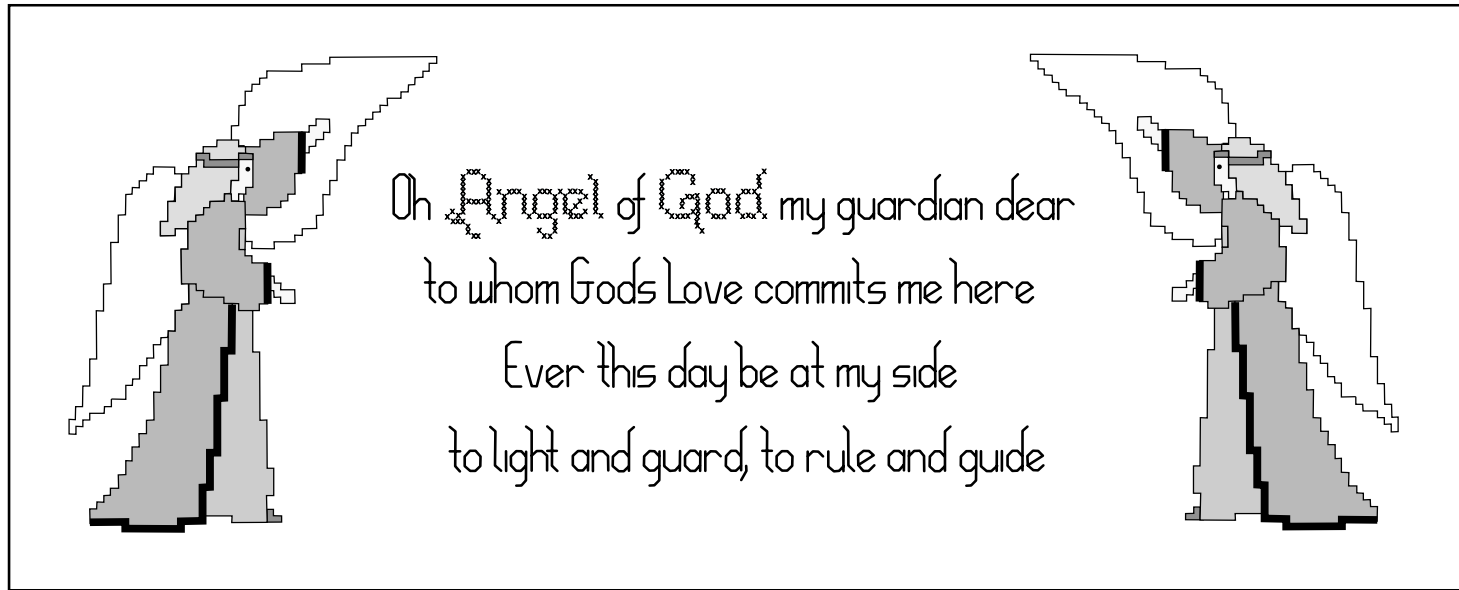 Oh Angel of God my guardian dear
to whom Gods Love commits me here
Ever this day be at my side
to light and guard, to rule and guide